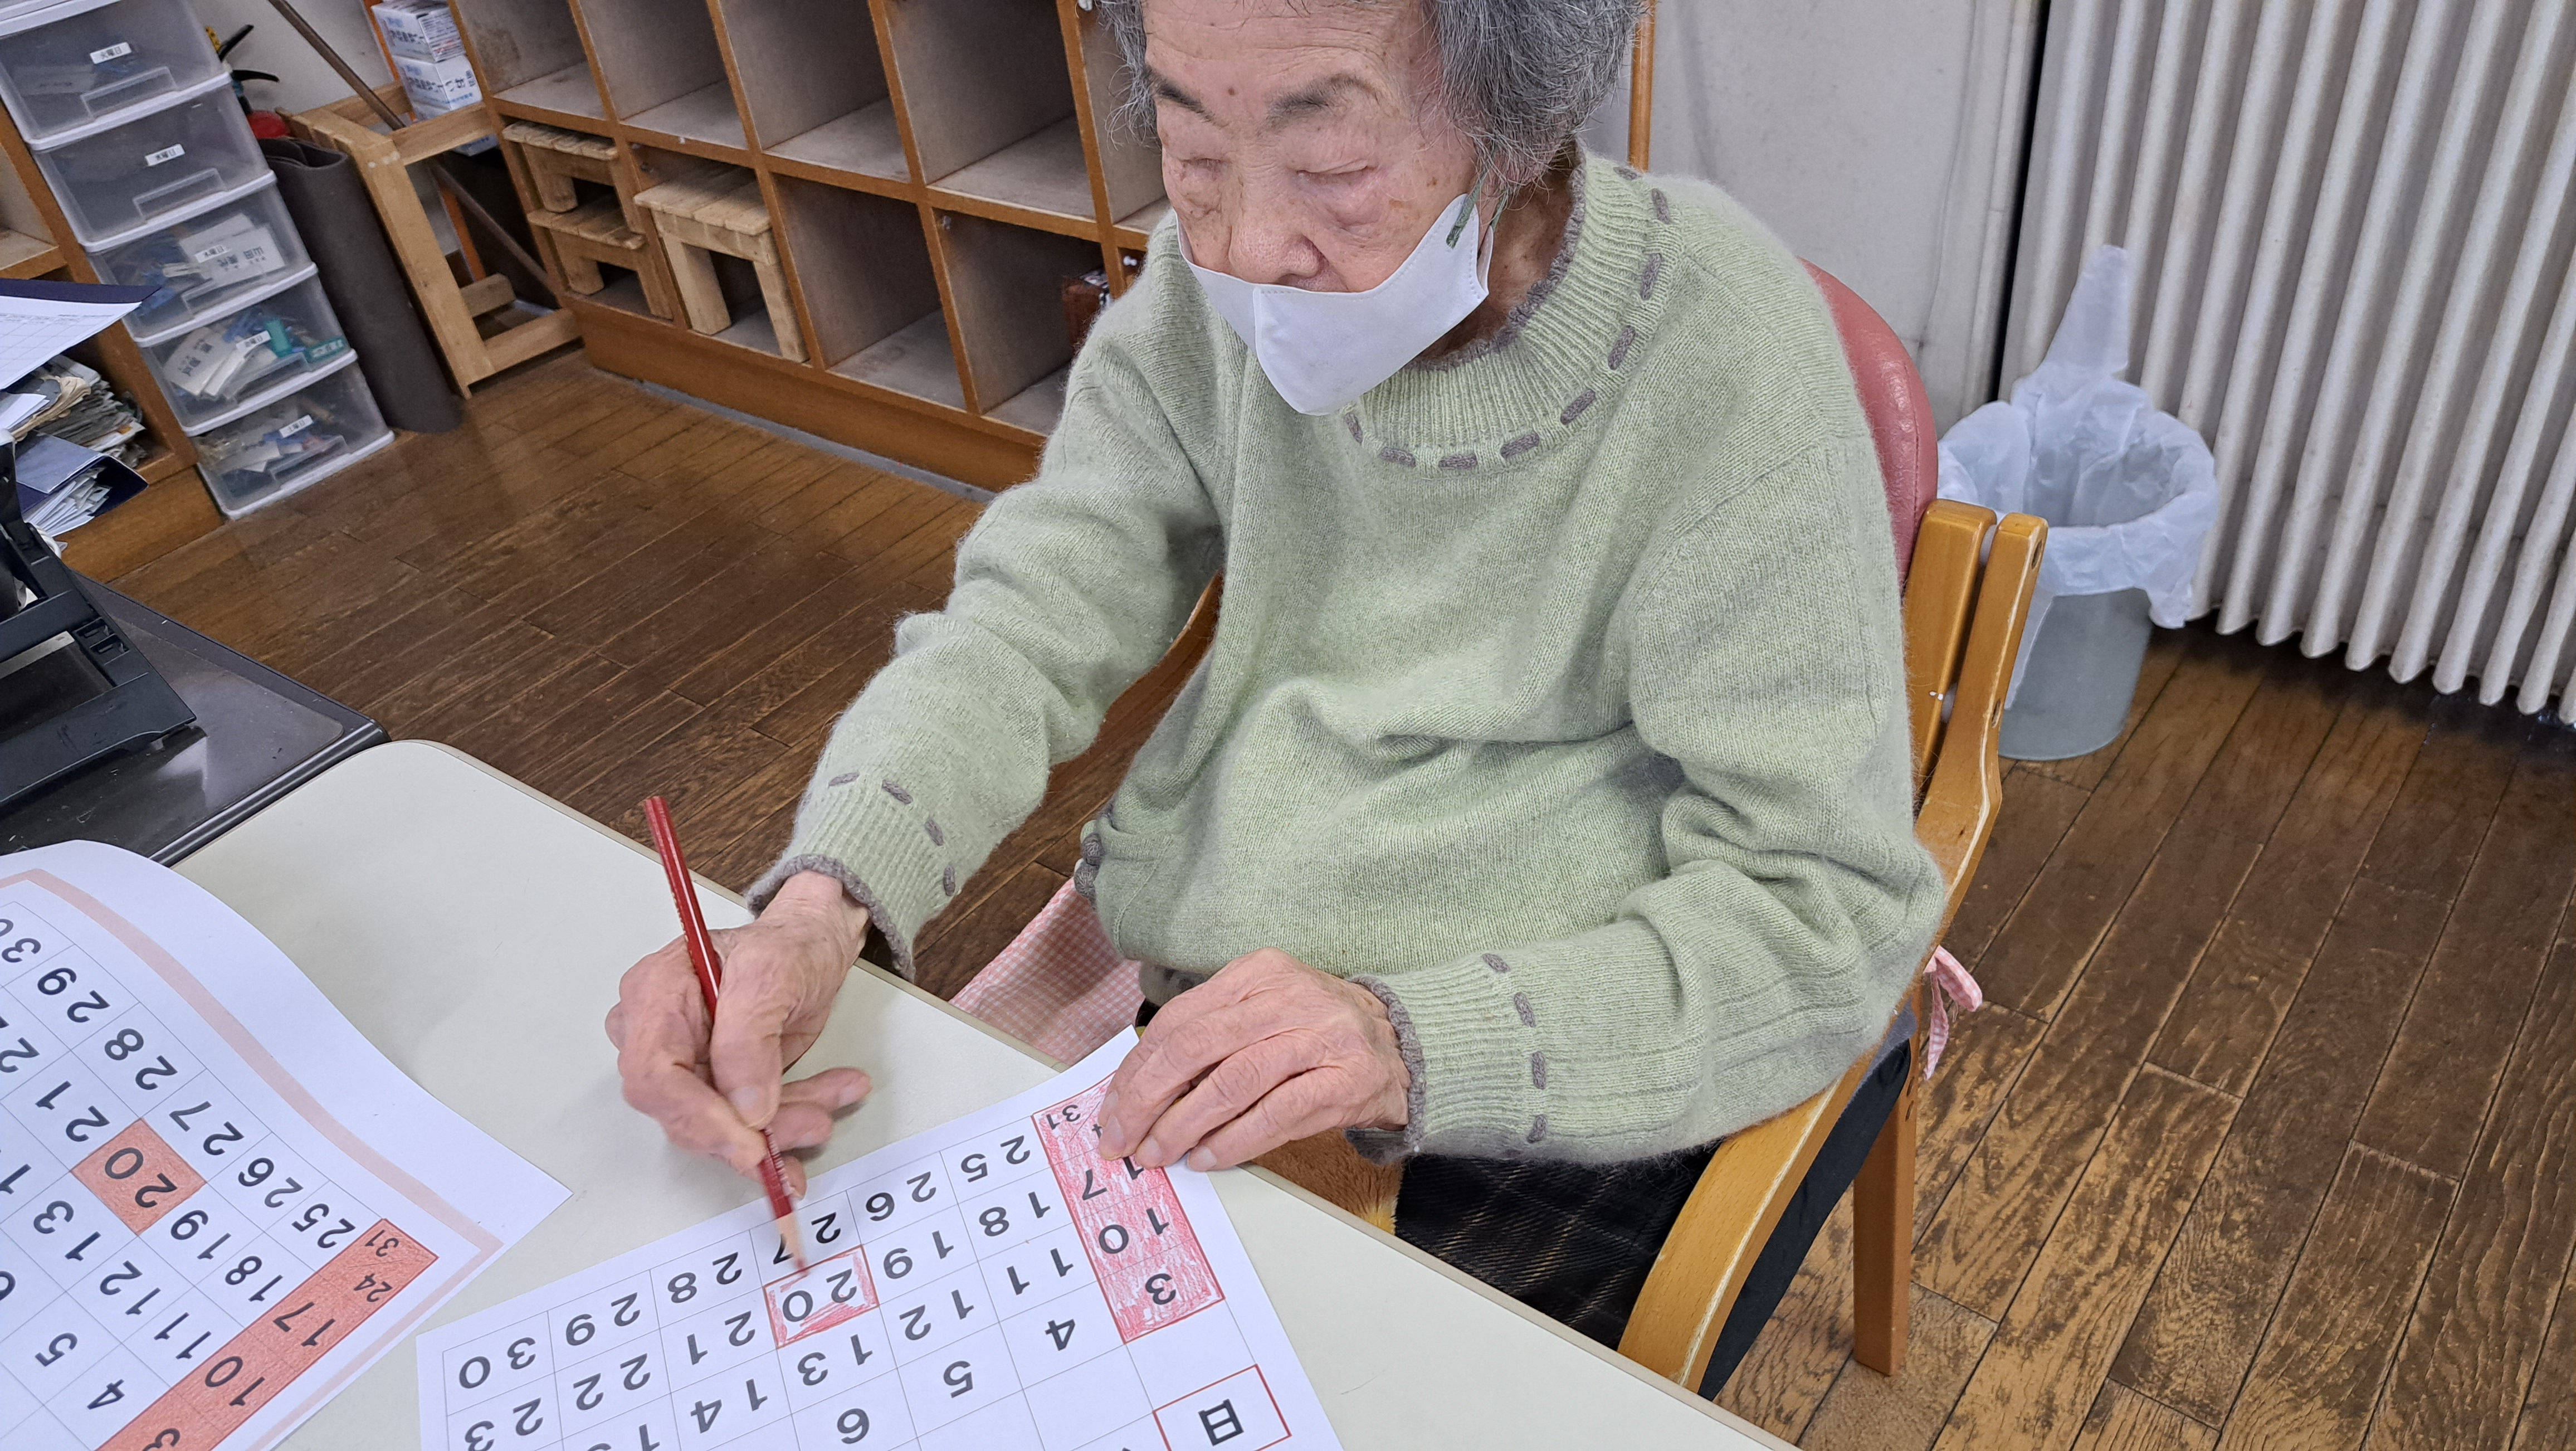 火曜日
水曜日
日
3 4 5 6
10 11 12 13 14
17 18 19 20 21 22 23
25 26 27 28 29 30
31
3 4 5
10 11 12 13
17 18 19 20 21
24 25 26 27 28 29 30
31